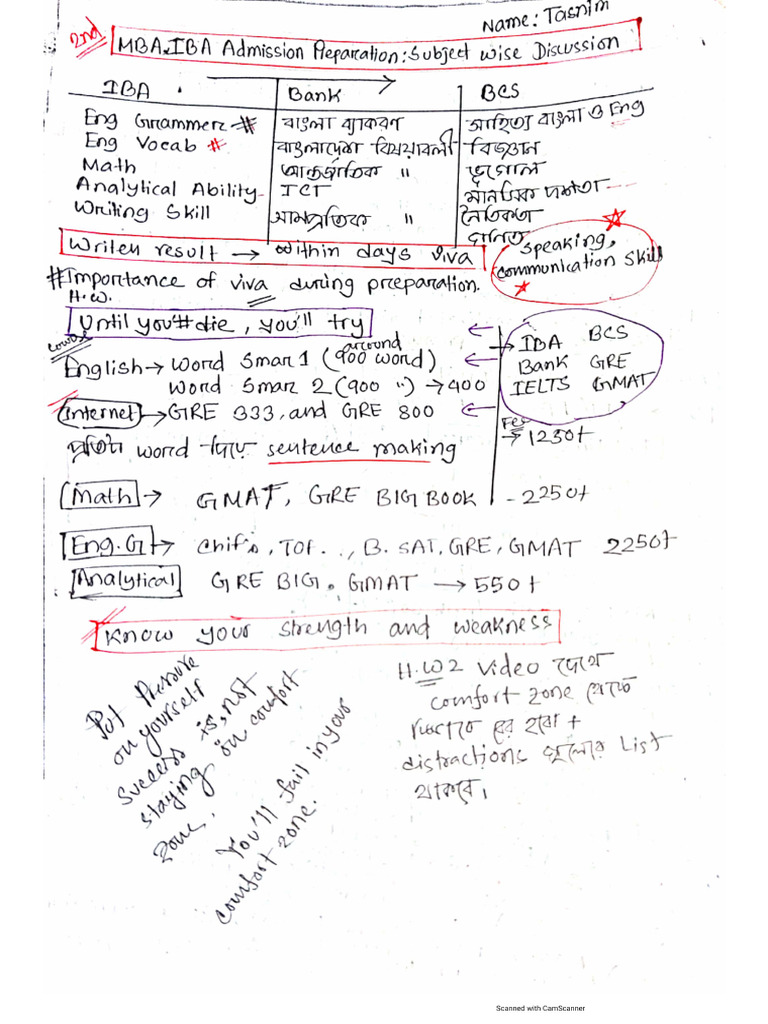 Name: Tasnim
2nd
MBA, IBA Admission Preparation: Subject Wise Discussion
IBA Bank BCS
Eng Grammer # বাংলা ব্যাকরণ সাহিত্য বাংলা ও Eng
Eng Vocab # বাংলাদেশ বিষয়াবলী বিজ্ঞান
Math আন্তর্জাতিক " ভূগোল
Analytical Ability ICT মানসিক দক্ষতা
Writing Skill সাম্প্রতিক " নৈতিকতা
গণিত
Writen result → within days viva
Speaking, communication Skill
#Importance of viva during preparation.
H.W.
Until you'll die, you'll try
English → Word Smar 1 (around 900 word)
Word Smar 2 (900 ") → 400
Internet → GRE 333, and GRE 800
→ IBA BCS
Bank GRE
IELTS GMAT
প্রতিটা word দিয়ে sentence making
→ 1250+
Math → GMAT, GRE BIG BOOK - 2250+
Eng.G → Chif's, TOF..., B. SAT, GRE, GMAT 2250+
Analytical GRE BIG. GMAT → 550+
Know your strength and weakness
Put Pressure
on yourself
Success is, not
staying on comfort
zone.
You'll fail in your
comfort zone.
H.W 2 Video দেখে
comfort zone থেকে
বের হবো +
distractions গুলোর List
থাকবে।
Scanned with CamScanner